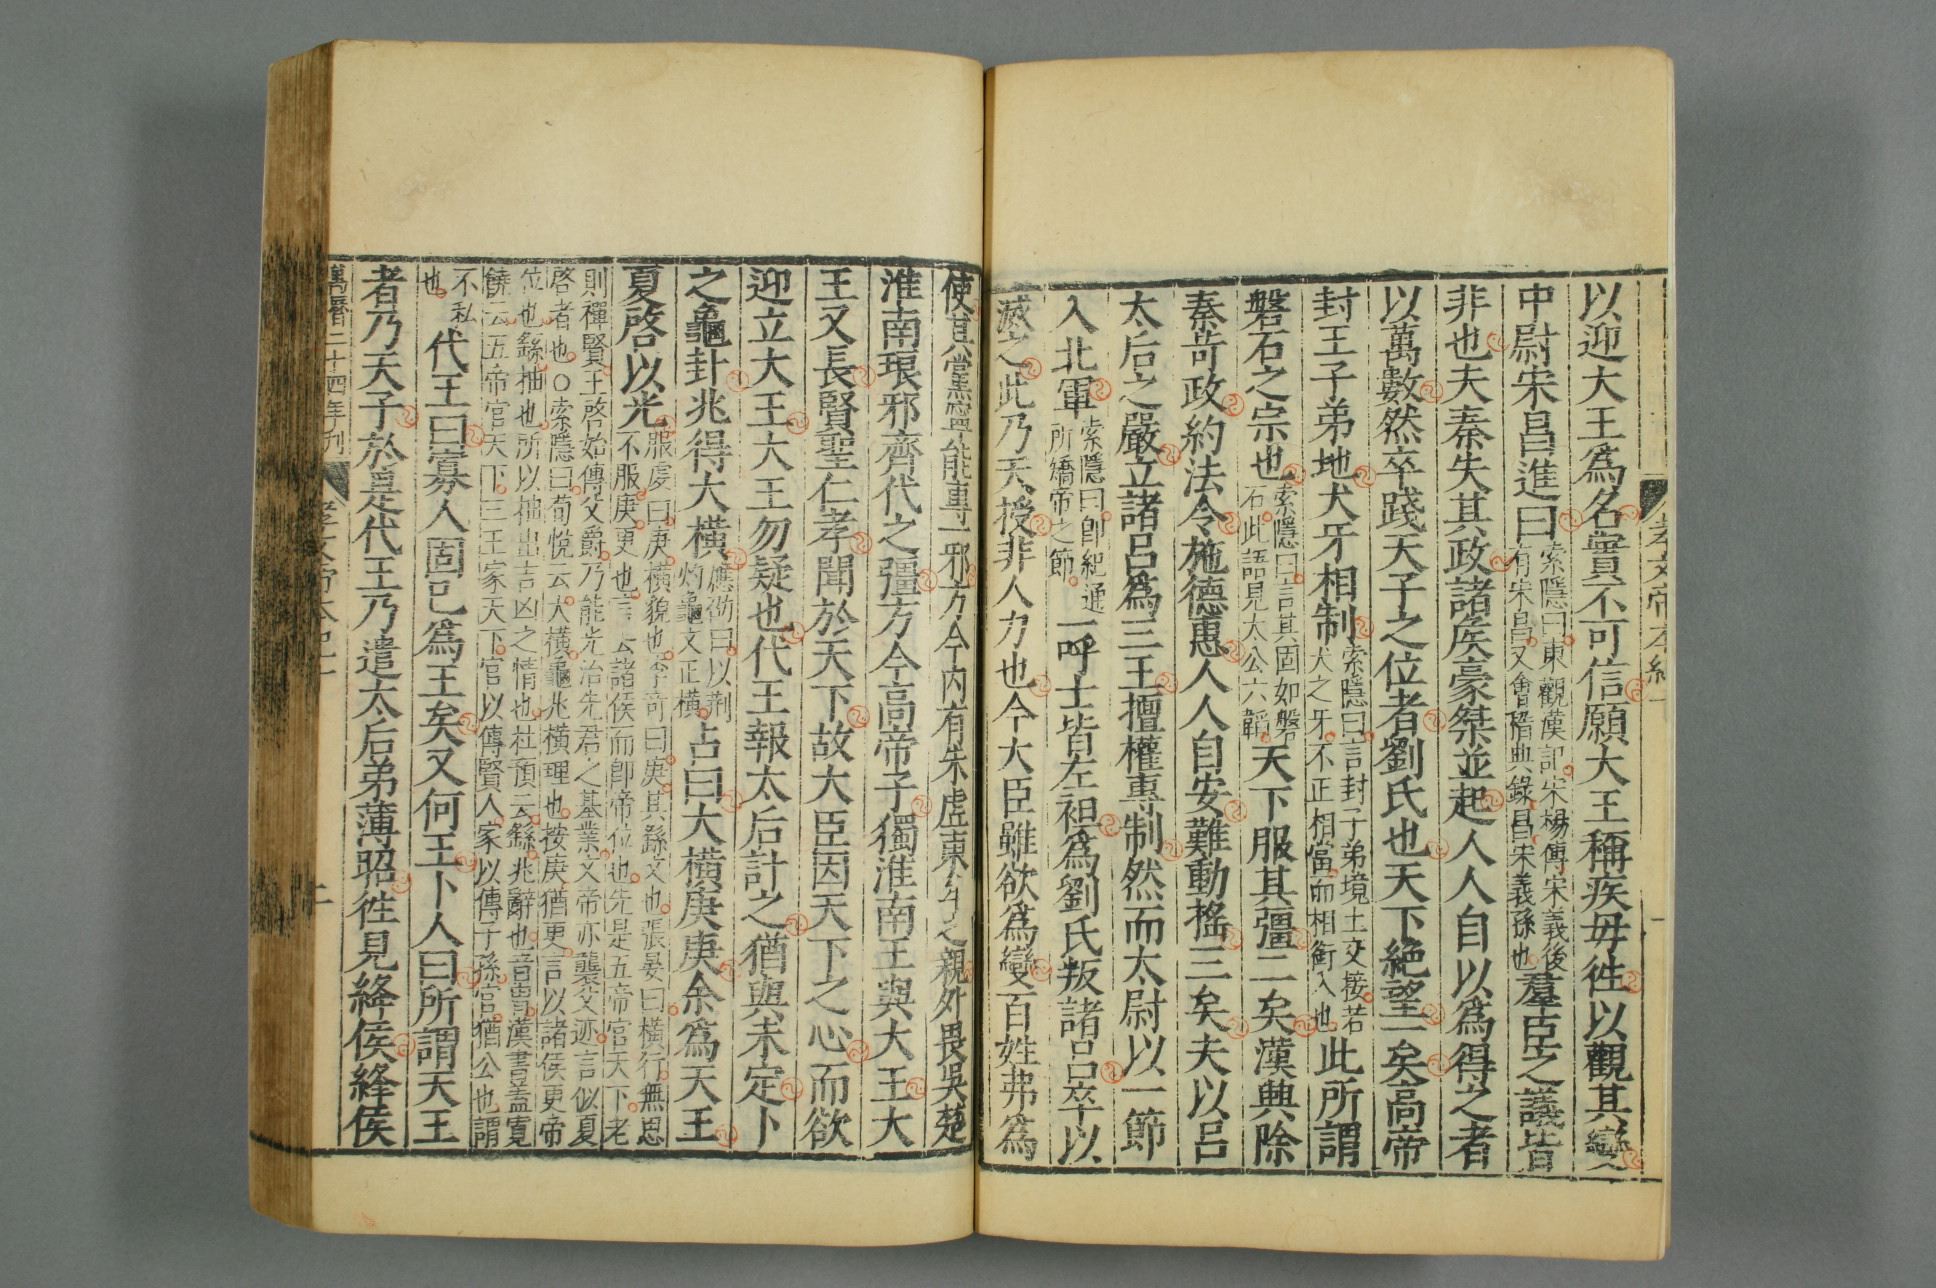 孝文帝本紀
以迎大王為名實不可信願大王稱疾毋徃以觀其變
中尉宋昌進曰索隱曰東觀漢記宋楊傳宋義後有宋昌又會稽典錄昌宋義孫也羣臣之議皆
非也夫秦失其政諸侯豪桀並起人人自以為得之者
以萬數然卒踐天子之位者劉氏也天下絶望一矣高帝
封王子弟地犬牙相制索隱曰言封子弟境土交接若犬之牙不正相當而相銜入也此所謂
磐石之宗也索隱曰言其固如磐石此語見太公六韜天下服其彊二矣漢興除
秦苛政約法令施德惠人人自安難動搖三矣夫以呂
太后之嚴立諸呂為三王擅權專制然而太尉以一節
入北軍索隱曰卽紀通所矯帝之節一呼士皆左袒為劉氏叛諸呂卒以
滅之此乃天授非人力也今大臣雖欲為變百姓弗為
使其黨寧能專一邪方今內有朱虛東牟之親外畏吳楚
淮南琅邪齊代之彊方今高帝子獨淮南王與大王大
王又長賢聖仁孝聞於天下故大臣因天下之心而欲
迎立大王大王勿疑也代王報太后計之猶與未定卜
之龜卦兆得大橫應劭曰以荆灼龜文正橫占曰大橫庚庚余為天王
夏啓以光服虔曰庚橫貌也李奇曰庚其繇文也張晏曰橫行無思不服庚更也言去諸侯而卽帝位也先是五帝官天下老
則禪賢王啓始傳父爵乃能光治先君之基業文帝亦襲父迹言似夏啓者也○索隱曰荀悅云大橫龜兆橫理也按庚猶更言以諸侯更帝
位也繇抽也所以抽出吉凶之情也杜預云繇兆辭也音胄漢書蓋寬饒云五帝官天下三王家天下官以傳賢人家以傳子孫官猶公也謂
不私也代王曰寡人固已為王矣又何王卜人曰所謂天王
者乃天子於是代王乃遣太后弟薄昭徃見絳侯絳侯
萬曆二十四年刋 孝文帝本紀十